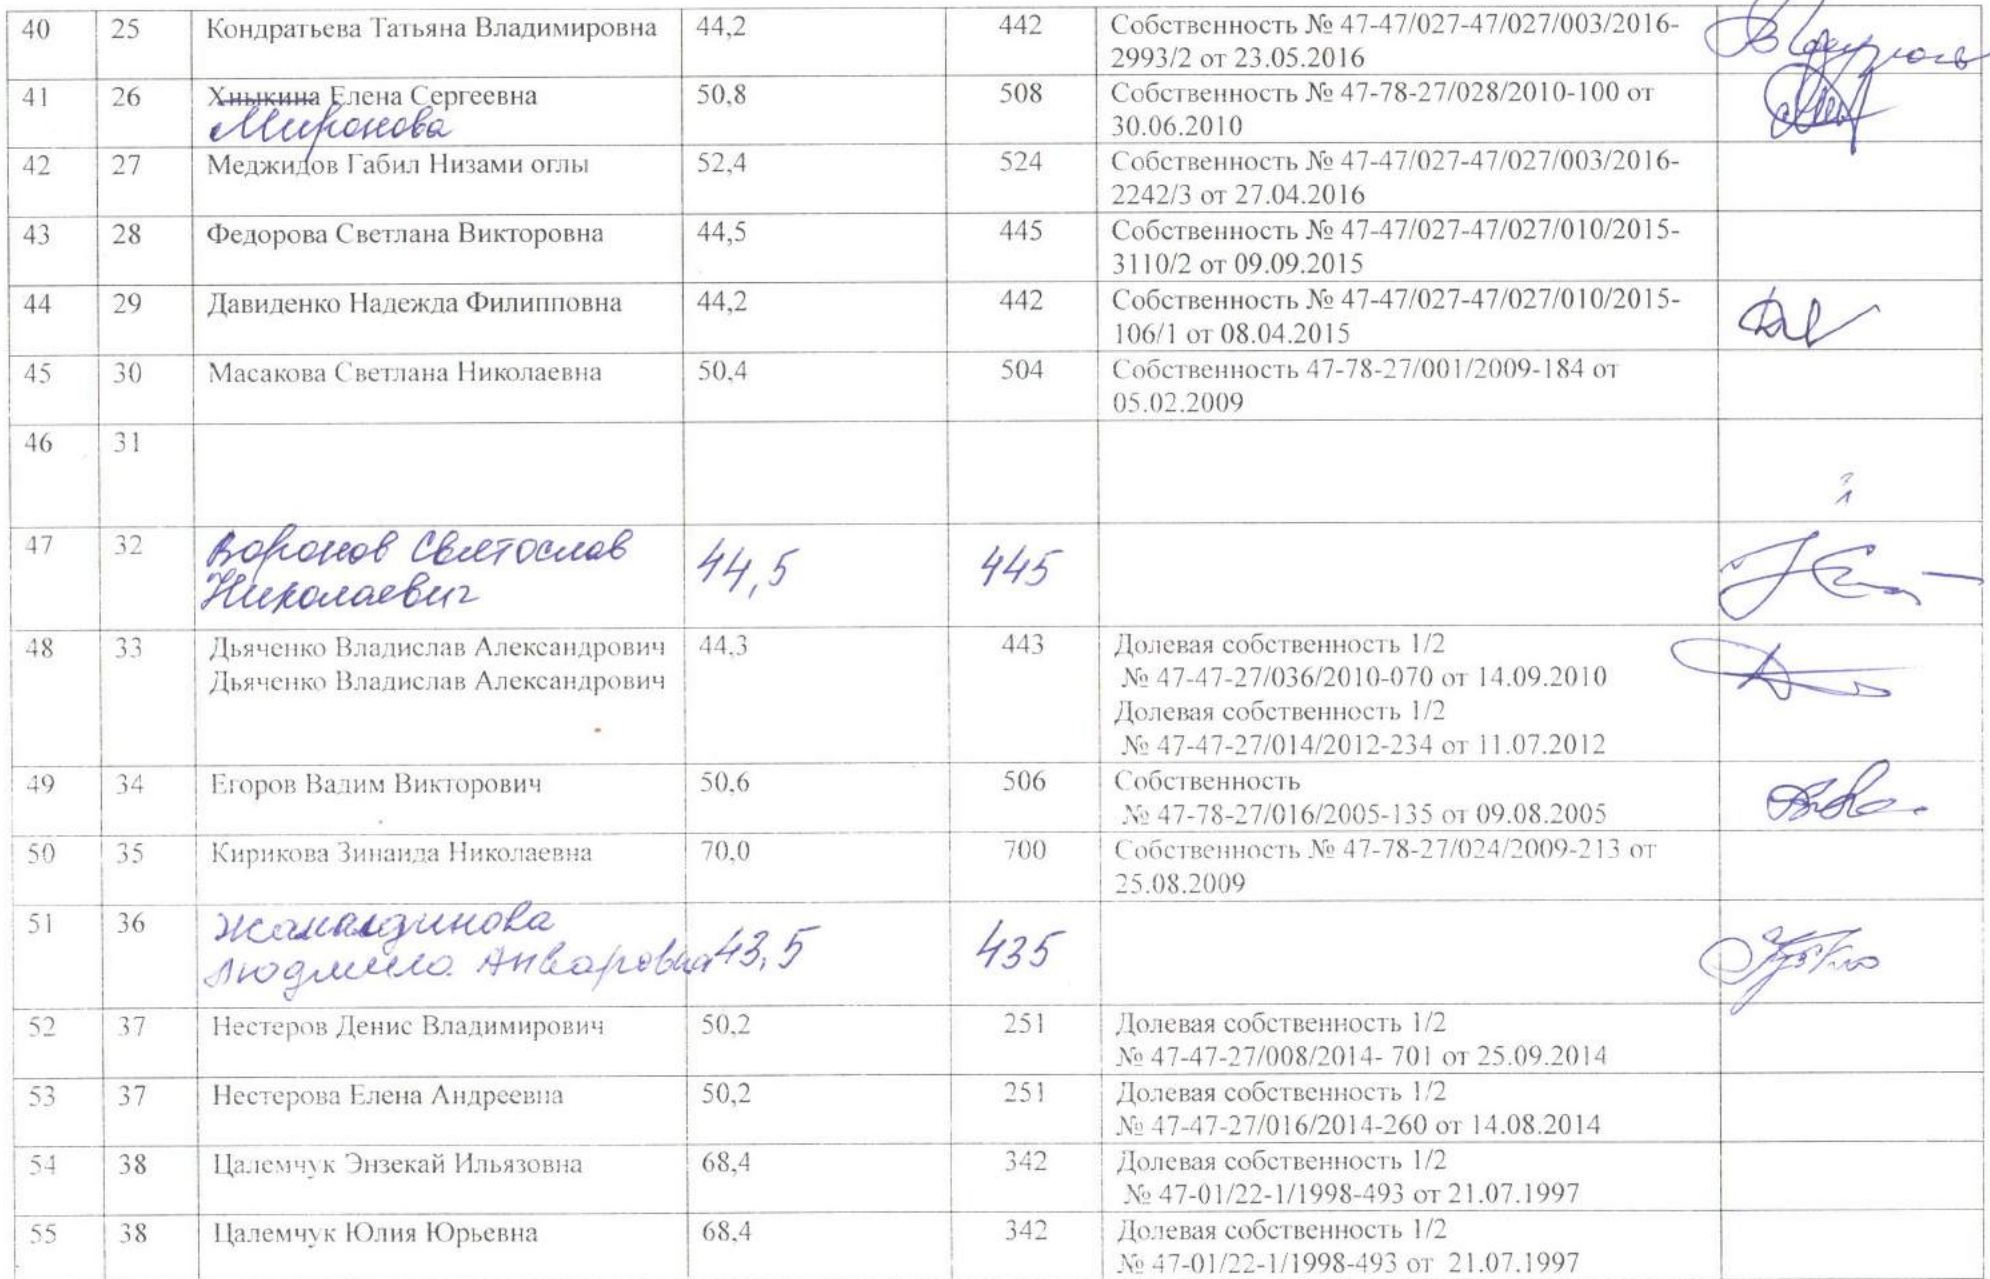 40 25 Кондратьева Татьяна Владимировна 44,2 442 Собственность № 47-47/027-47/027/003/2016-
2993/2 от 23.05.2016
41 26 Хныкина Елена Сергеевна 50,8 508 Собственность № 47-78-27/028/2010-100 от
Миронова 30.06.2010
42 27 Меджидов Габил Низами оглы 52,4 524 Собственность № 47-47/027-47/027/003/2016-
2242/3 от 27.04.2016
43 28 Федорова Светлана Викторовна 44,5 445 Собственность № 47-47/027-47/027/010/2015-
3110/2 от 09.09.2015
44 29 Давиденко Надежда Филипповна 44,2 442 Собственность № 47-47/027-47/027/010/2015-
106/1 от 08.04.2015
45 30 Масакова Светлана Николаевна 50,4 504 Собственность 47-78-27/001/2009-184 от
05.02.2009
46 31
47 32 Воронов Святослав 44,5 445
Николаевич
48 33 Дьяченко Владислав Александрович 44,3 443 Долевая собственность 1/2
Дьяченко Владислав Александрович № 47-47-27/036/2010-070 от 14.09.2010
Долевая собственность 1/2
№ 47-47-27/014/2012-234 от 11.07.2012
49 34 Егоров Вадим Викторович 50,6 506 Собственность
№ 47-78-27/016/2005-135 от 09.08.2005
50 35 Кирикова Зинаида Николаевна 70,0 700 Собственность № 47-78-27/024/2009-213 от
25.08.2009
51 36 Жамалдинова
Людмила Анваровна 43,5 435
52 37 Нестеров Денис Владимирович 50,2 251 Долевая собственность 1/2
№ 47-47-27/008/2014- 701 от 25.09.2014
53 37 Нестерова Елена Андреевна 50,2 251 Долевая собственность 1/2
№ 47-47-27/016/2014-260 от 14.08.2014
54 38 Цалемчук Энзекай Ильязовна 68,4 342 Долевая собственность 1/2
№ 47-01/22-1/1998-493 от 21.07.1997
55 38 Цалемчук Юлия Юрьевна 68,4 342 Долевая собственность 1/2
№ 47-01/22-1/1998-493 от 21.07.1997